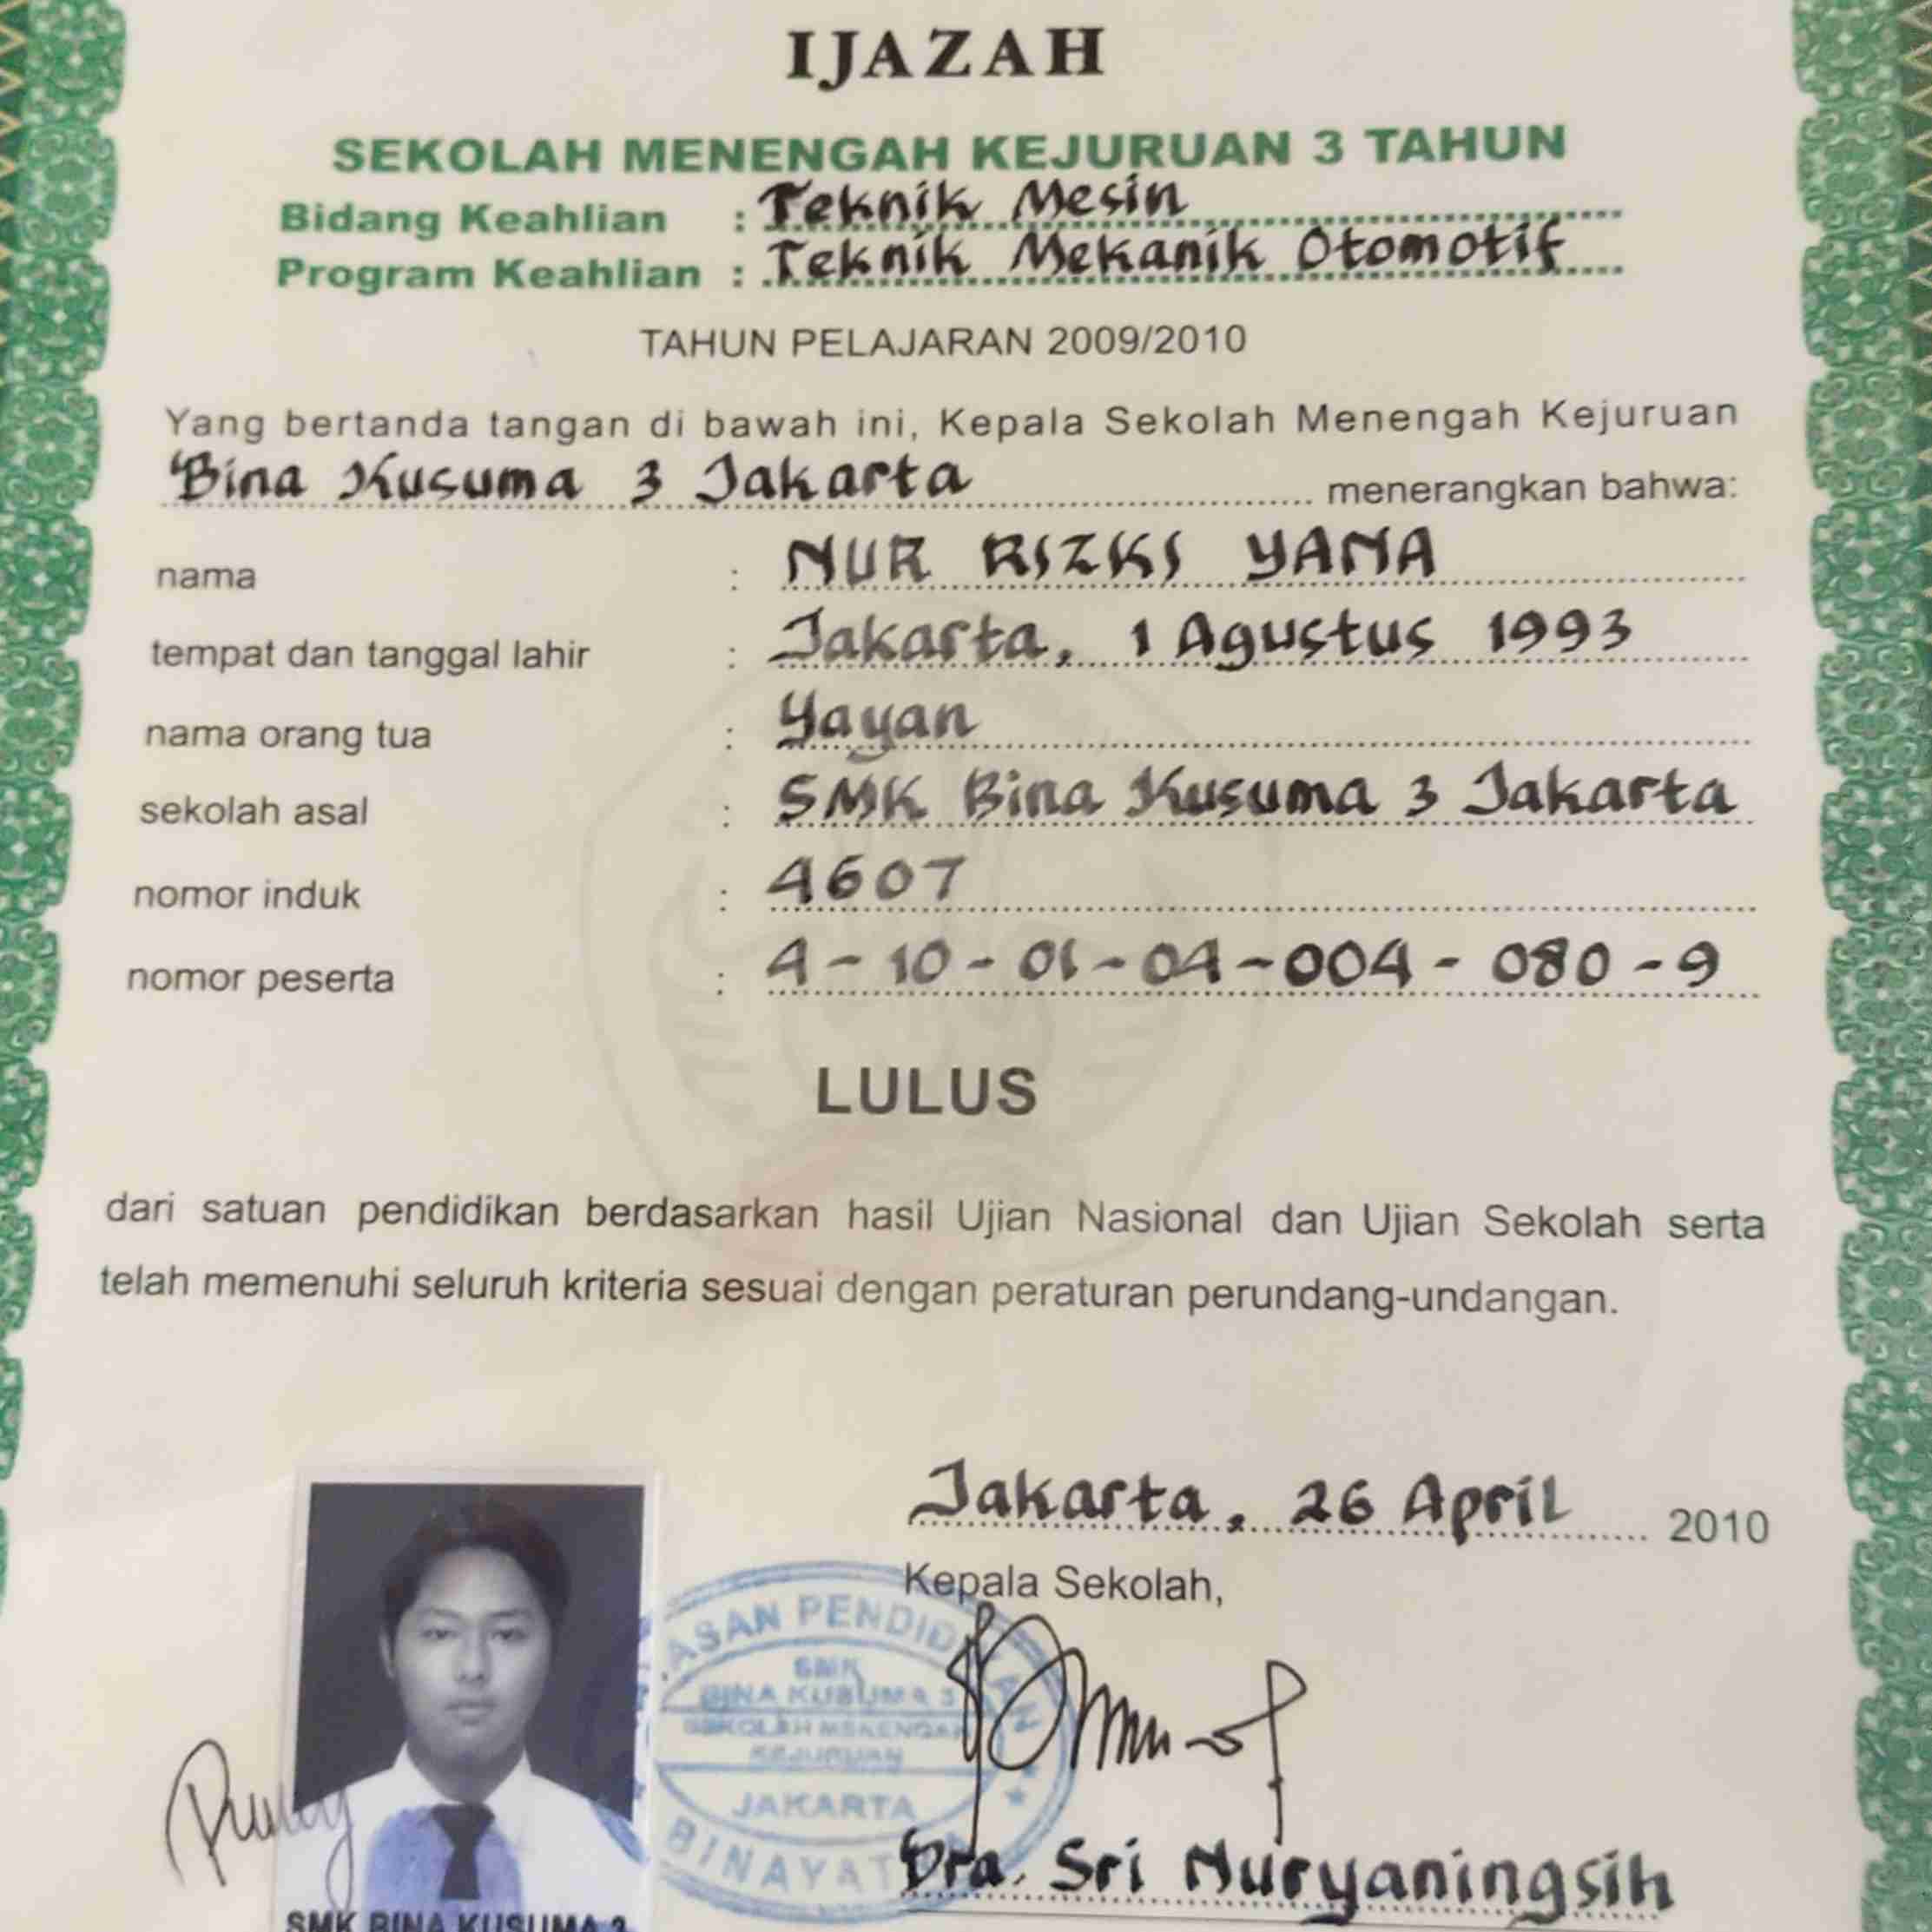 IJAZAH
SEKOLAH MENENGAH KEJURUAN 3 TAHUN
Bidang Keahlian : Teknik Mesin
Program Keahlian : Teknik Mekanik Otomotif
TAHUN PELAJARAN 2009/2010
Yang bertanda tangan di bawah ini, Kepala Sekolah Menengah Kejuruan
Bina Kusuma 3 Jakarta menerangkan bahwa:
nama : NUR RIZKI YANA
tempat dan tanggal lahir : Jakarta, 1 Agustus 1993
nama orang tua : Yayan
sekolah asal : SMK Bina Kusuma 3 Jakarta
nomor induk : 4607
nomor peserta : 4-10-01-04-004-080-9
LULUS
dari satuan pendidikan berdasarkan hasil Ujian Nasional dan Ujian Sekolah serta
telah memenuhi seluruh kriteria sesuai dengan peraturan perundang-undangan.
Jakarta, 26 April 2010
Kepala Sekolah,
ASAN PENDIDIKAN
SMK
BINA KUSUMA 3
SEKOLAH MENENGAH
KEJURUAN
JAKARTA
BINAYAT
Dra. Sri Nuryaningsih
SMK BINA KUSUMA 3